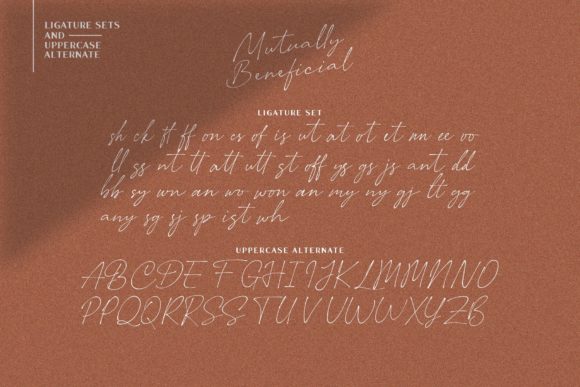 LIGATURE SETS
AND
UPPERCASE
ALTERNATE
Mutually
Beneficial
LIGATURE SET
sh ck tt ff on cs of is ut at ot et nn ee oo
ll ss nt tt att utt st off ys gs js ant dd
bb sy wn an wo won an my ny gj lt gg
any sg sj sp ist wh
UPPERCASE ALTERNATE
ABCDE F GHIJKLMMNNO
PPQRRSS T U V UWWXYZB